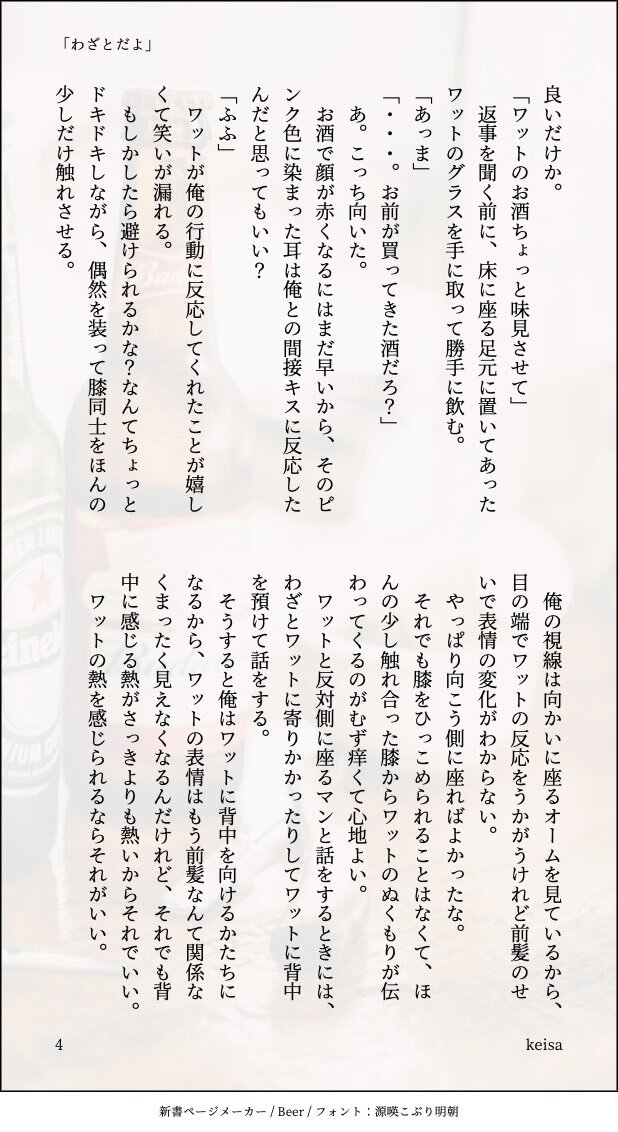 「わざとだよ」
良いだけか。
「ワットのお酒ちょっと味見させて」
返事を聞く前に、床に座る足元に置いてあった
ワットのグラスを手に取って勝手に飲む。
「あっま」
「・・・。お前が買ってきた酒だろ？」
あ。こっち向いた。
お酒で顔が赤くなるにはまだ早いから、そのピ
ンク色に染まった耳は俺との間接キスに反応した
んだと思ってもいい？
「ふふ」
ワットが俺の行動に反応してくれたことが嬉し
くて笑いが漏れる。
もしかしたら避けられるかな？なんてちょっと
ドキドキしながら、偶然を装って膝同士をほんの
少しだけ触れさせる。
俺の視線は向かいに座るオームを見ているから、
目の端でワットの反応をうかがうけれど前髪のせ
いで表情の変化がわからない。
やっぱり向こう側に座ればよかったな。
それでも膝をひっこめられることはなくて、ほ
んの少し触れ合った膝からワットのぬくもりが伝
わってくるのがむず痒くて心地よい。
ワットと反対側に座るマンと話をするときには、
わざとワットに寄りかかったりしてワットに背中
を預けて話をする。
そうすると俺はワットに背中を向けるかたちに
なるから、ワットの表情はもう前髪なんて関係な
くまったく見えなくなるんだけれど、それでも背
中に感じる熱がさっきよりも熱いからそれでいい。
ワットの熱を感じられるならそれがいい。
4
keisa
新書ページメーカー / Beer / フォント：源暎こぶり明朝